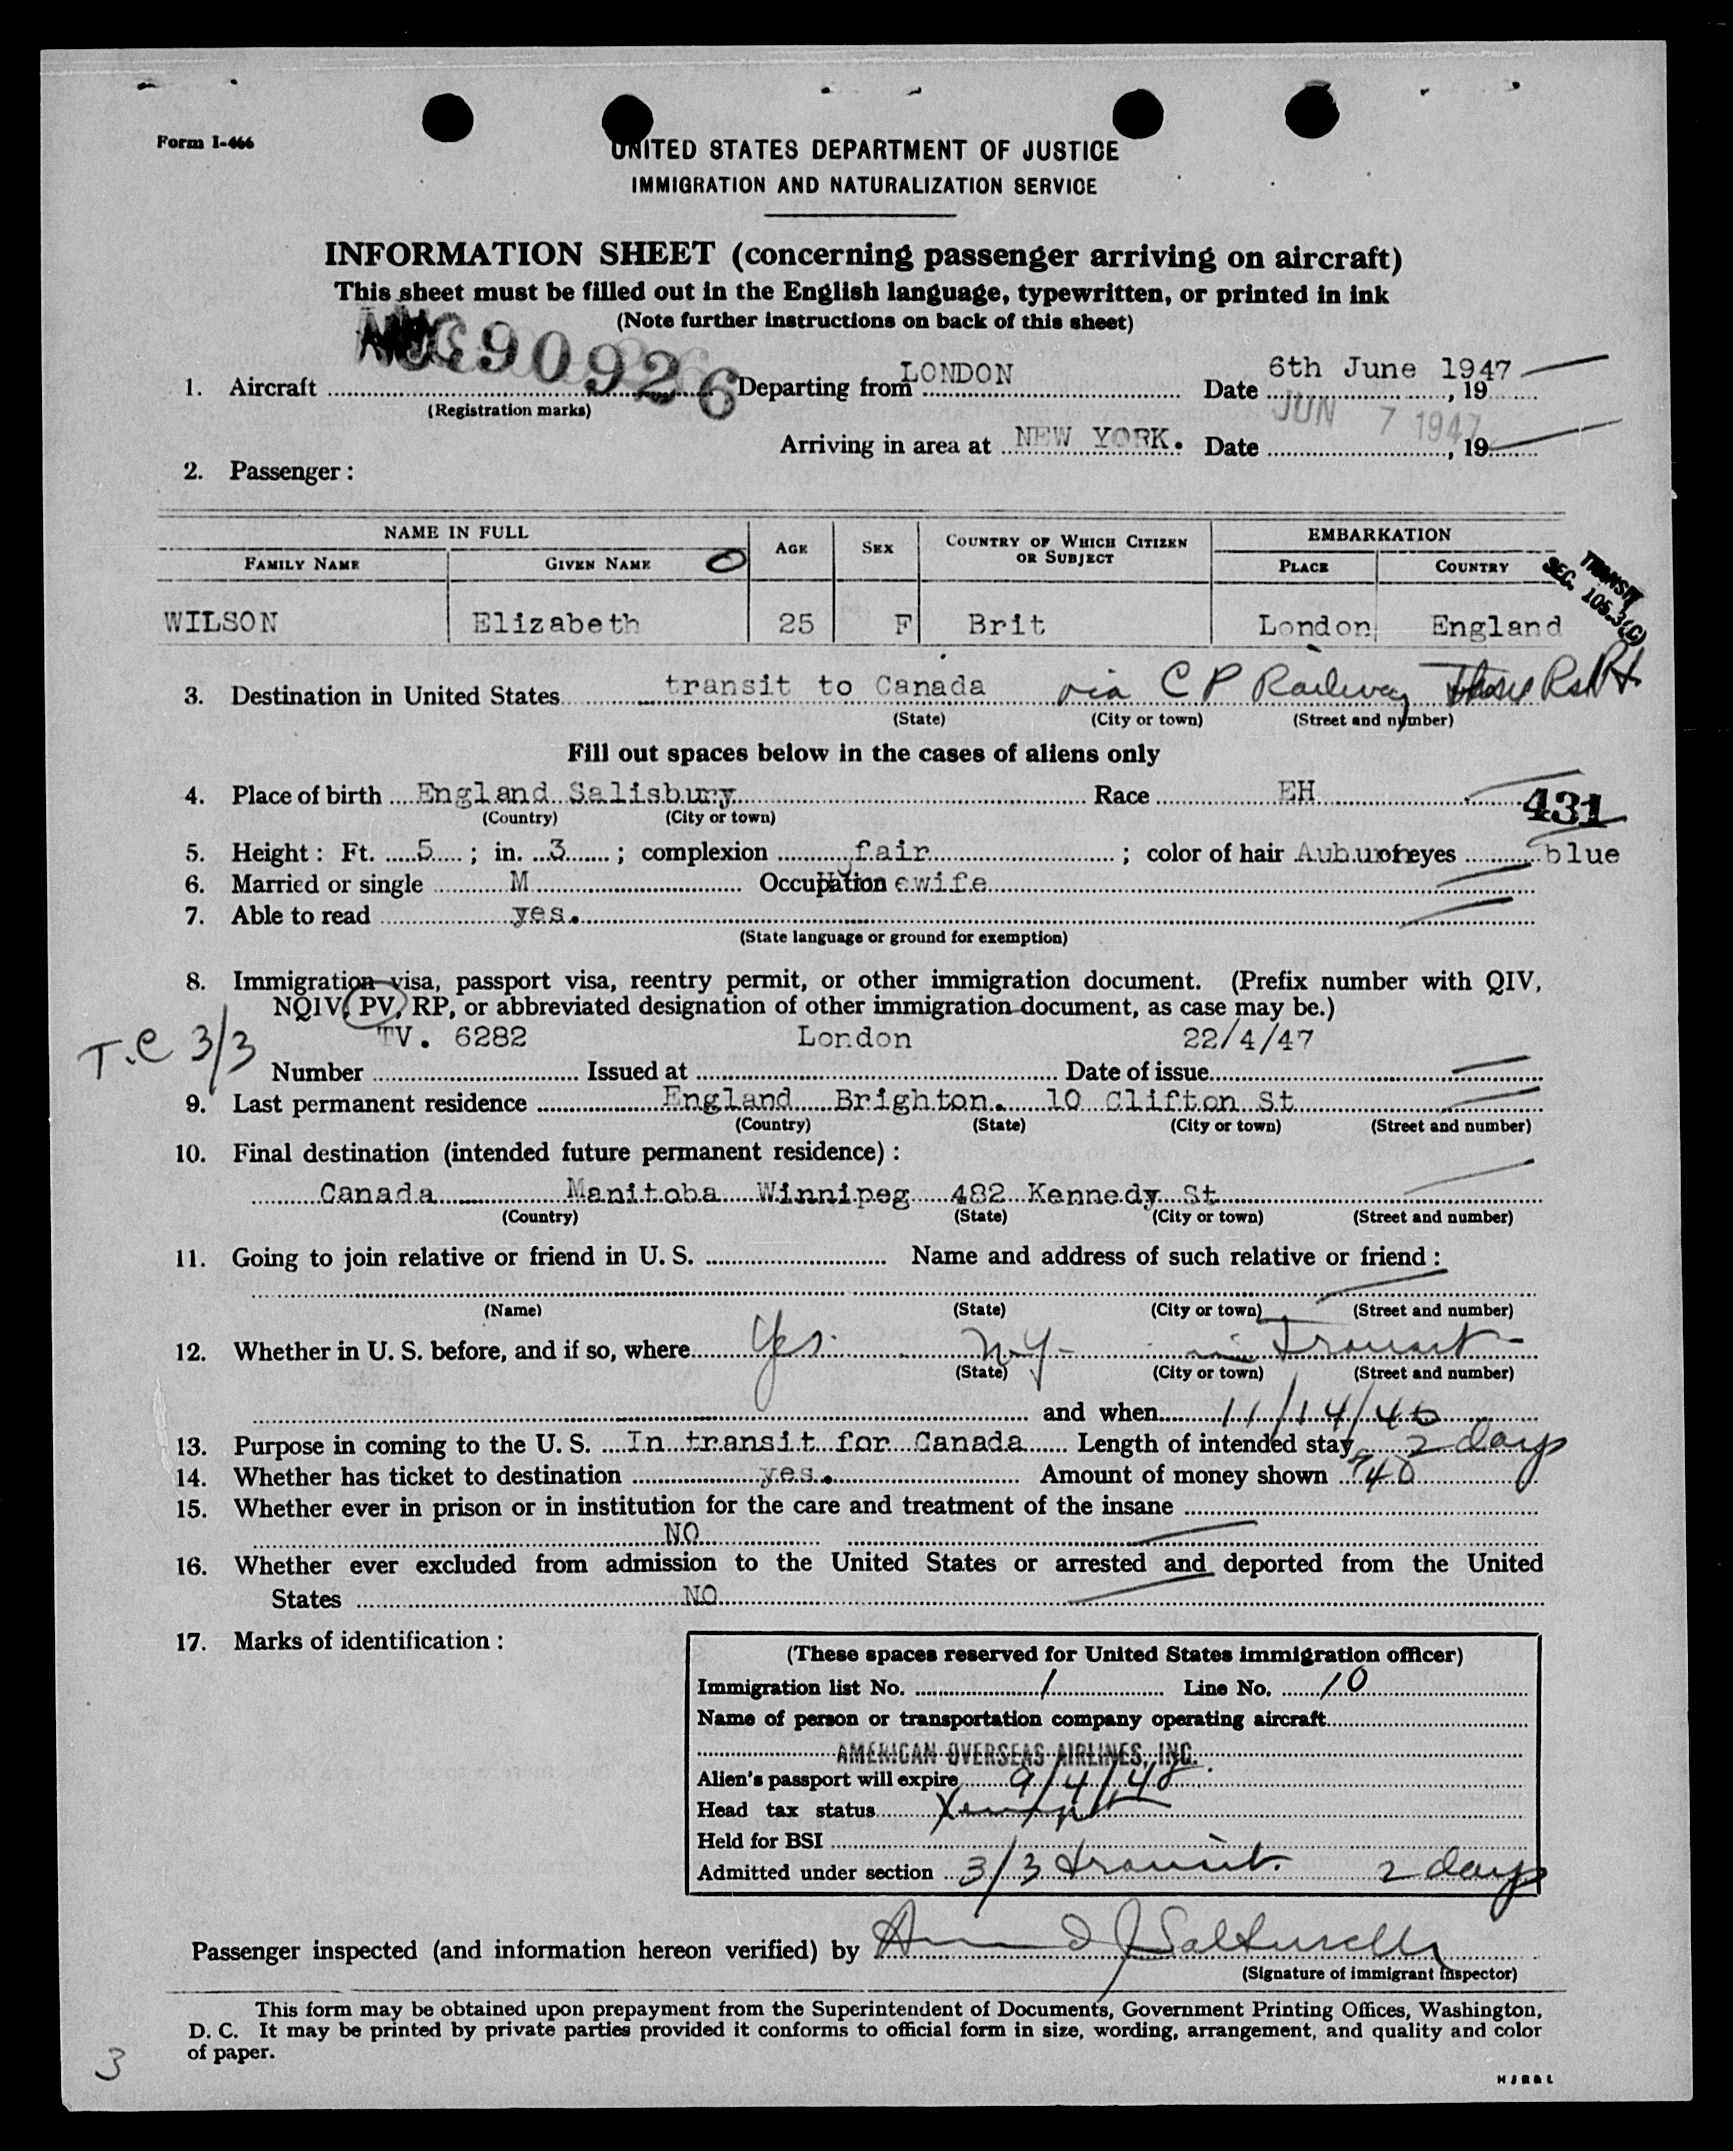 Form I-466
UNITED STATES DEPARTMENT OF JUSTICE
IMMIGRATION AND NATURALIZATION SERVICE
INFORMATION SHEET (concerning passenger arriving on aircraft)
This sheet must be filled out in the English language, typewritten, or printed in ink
(Note further instructions on back of this sheet)
1. Aircraft 90926 Departing from LONDON Date 6th June 1947, 19
(Registration marks)
Arriving in area at NEW YORK. Date JUN 7 1947, 19
2. Passenger:
NAME IN FULL AGE SEX COUNTRY OF WHICH CITIZEN OR SUBJECT EMBARKATION
FAMILY NAME GIVEN NAME PLACE COUNTRY
TRANSIT
SEC. 105.3(C)
WILSON Elizabeth 25 F Brit London England
3. Destination in United States transit to Canada via C P Railway
(State) (City or town) (Street and number)
Fill out spaces below in the cases of aliens only
4. Place of birth England Salisbury Race EH
431
(Country) (City or town)
5. Height: Ft. 5; in. 3; complexion fair; color of hair Auburn eyes blue
6. Married or single M Occupation Housewife
7. Able to read yes.
(State language or ground for exemption)
8. Immigration visa, passport visa, reentry permit, or other immigration document. (Prefix number with QIV,
NQIV, PV, RP, or abbreviated designation of other immigration document, as case may be.)
T.C 3/3
TV. 6282 London 22/4/47
Number Issued at Date of issue
9. Last permanent residence England Brighton. 10 Clifton St
(Country) (State) (City or town) (Street and number)
10. Final destination (intended future permanent residence):
Canada Manitoba Winnipeg 482 Kennedy St
(Country) (State) (City or town) (Street and number)
11. Going to join relative or friend in U. S. Name and address of such relative or friend:
(Name) (State) (City or town) (Street and number)
12. Whether in U. S. before, and if so, where Yes. N.Y- in Transit-
(State) (City or town) (Street and number)
and when 11/14/46
13. Purpose in coming to the U. S. In transit for Canada Length of intended stay 2 days
14. Whether has ticket to destination yes. Amount of money shown $40
15. Whether ever in prison or in institution for the care and treatment of the insane
NO
16. Whether ever excluded from admission to the United States or arrested and deported from the United
States NO
17. Marks of identification:
(These spaces reserved for United States immigration officer)
Immigration list No. 1 Line No. 10
Name of person or transportation company operating aircraft
AMERICAN OVERSEAS AIRLINES, INC.
Alien's passport will expire 9/4/48
Head tax status Xempt
Held for BSI
Admitted under section 3/3 transit. 2 days
Passenger inspected (and information hereon verified) by
(Signature of immigrant inspector)
This form may be obtained upon prepayment from the Superintendent of Documents, Government Printing Offices, Washington,
D. C. It may be printed by private parties provided it conforms to official form in size, wording, arrangement, and quality and color
of paper.
3